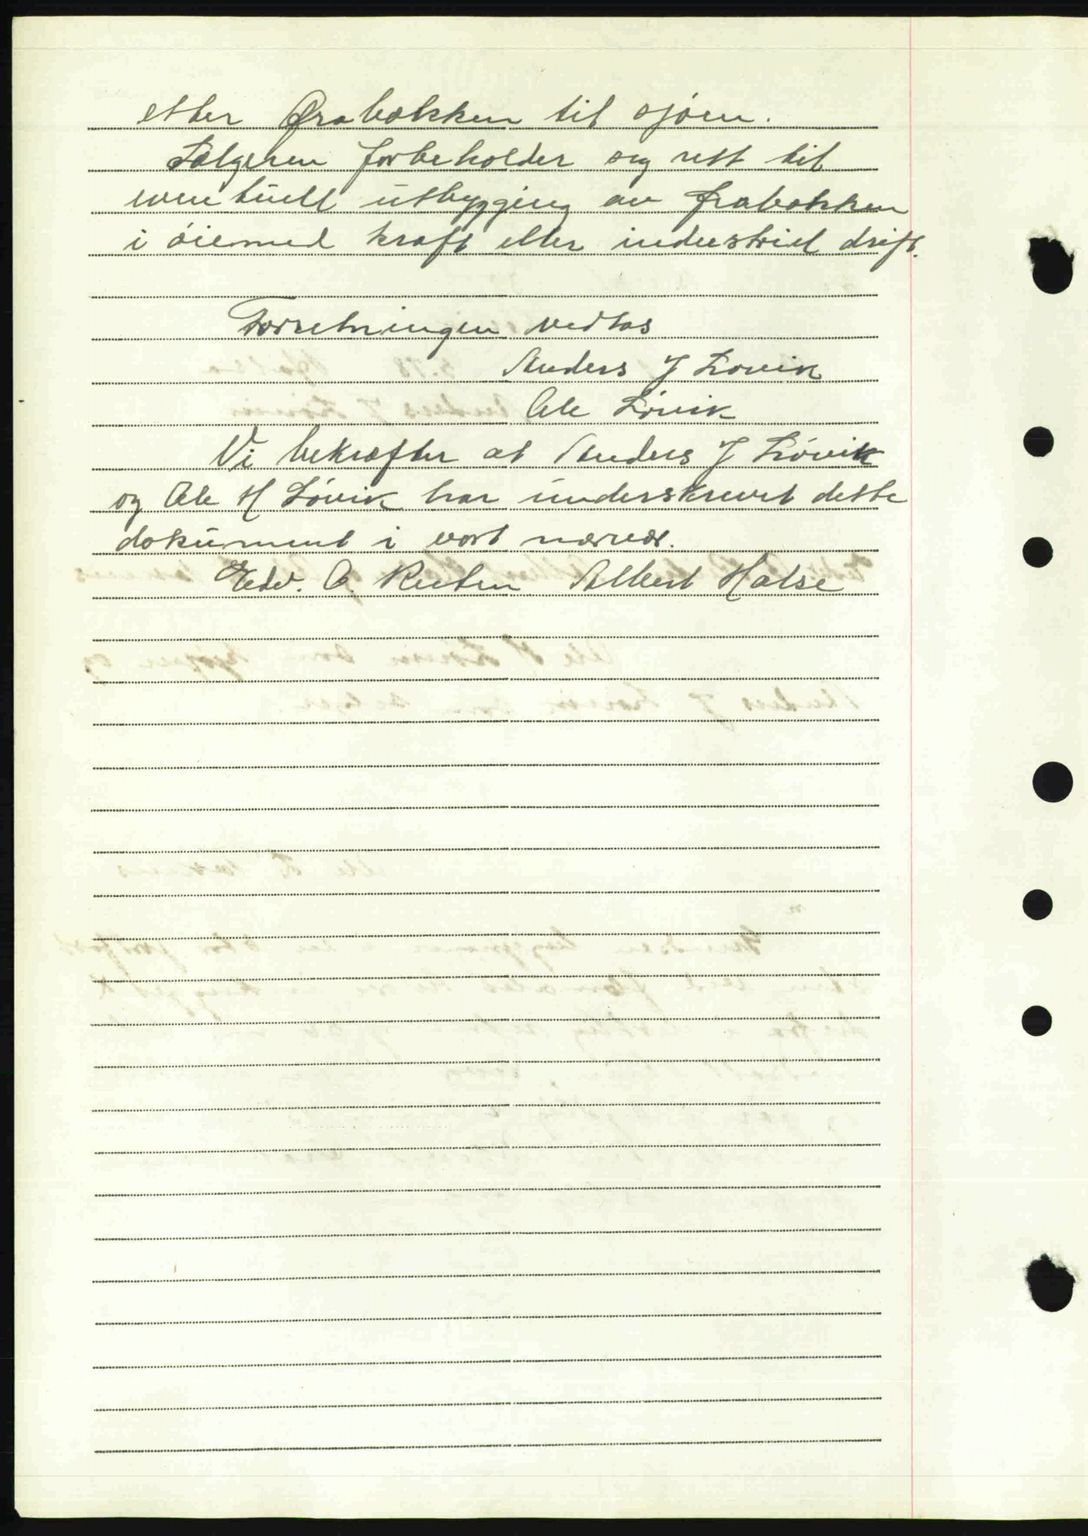 etter Ørabækken til sjøen.
Sælgeren forbeholder seg rett til
eventuell utbygging av Ørabækken
i øiemed kraft eller industriel drift.
Forretningen vedtas
Anders J Løvik
Ole Løvik
Vi bekræfter at Anders J Løvik
og Ole H Løvik har underskrevet dette
dokument i vort nærvær.
Edv. O. Halse